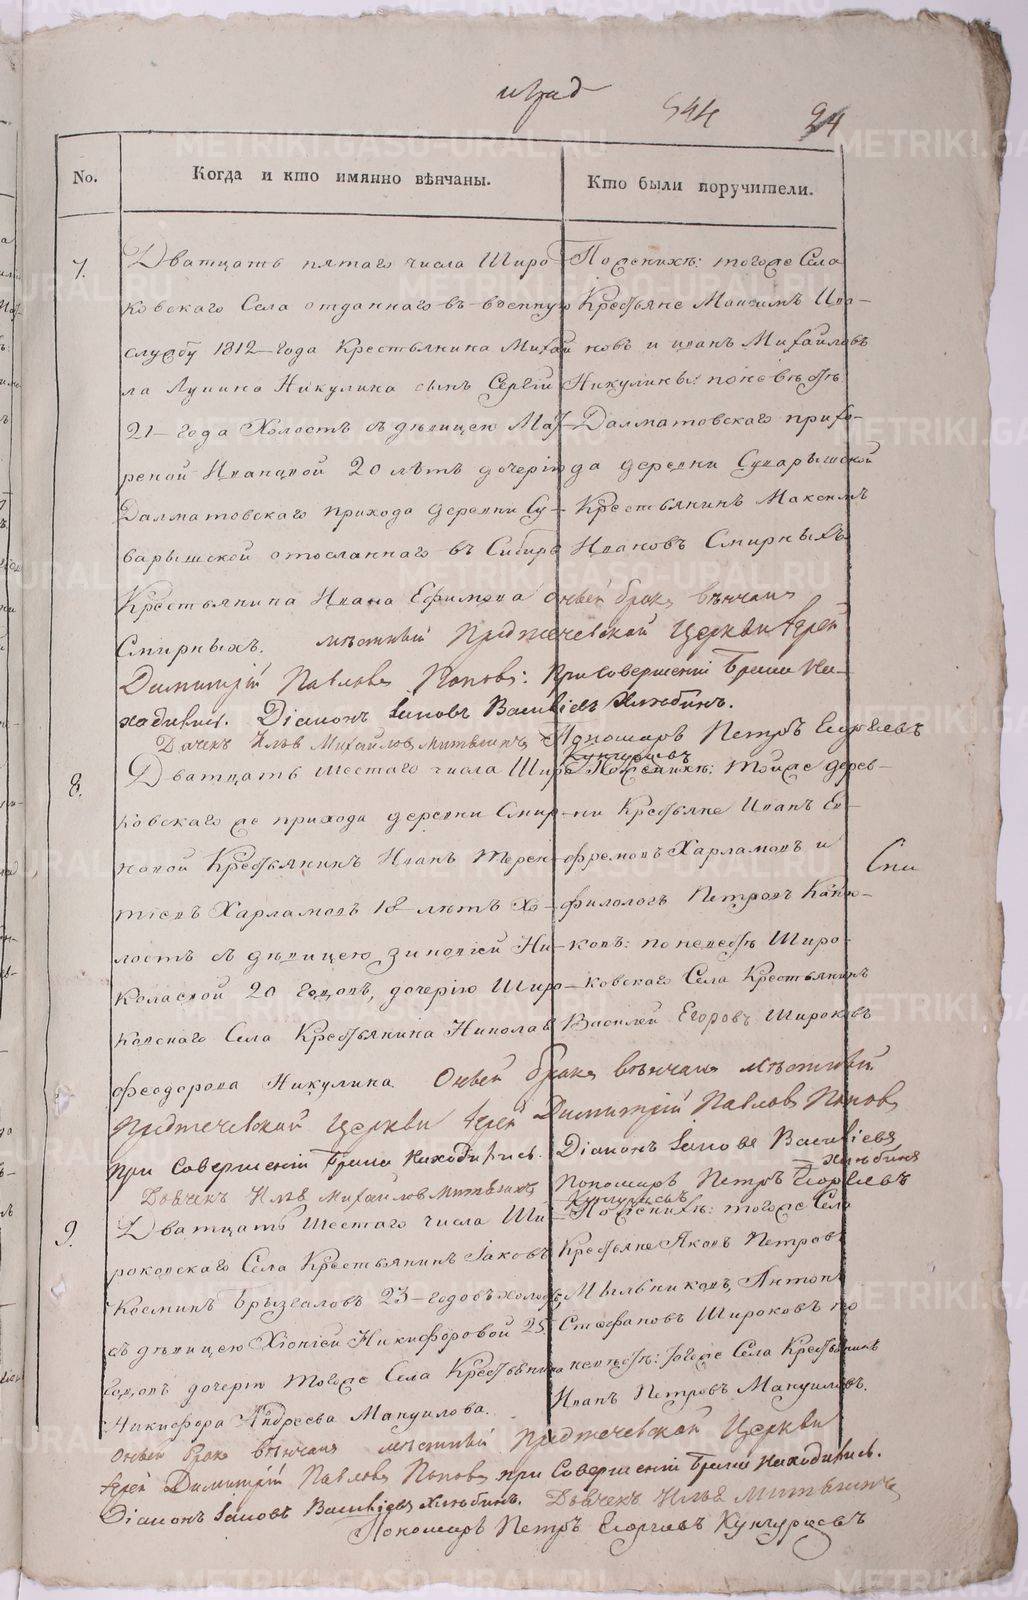 544
24
No.
Когда и кто имянно вѣнчаны.
Кто были поручители.
7.
Дватцать пятаго числа Широ-
ковскаго Села отданнаго въ военную
службу 1812 года Крестьянина Михаи
ла Лупина Никулина сынъ Сергій
21 года Холостъ съ дѣвицею Мат-
реной Ивановой 20 лѣтъ дочерію
Далматовскаго прихода деревни Су-
варышской отосланнаго въ Сибирь
Крестьянина Ивана Ефимова
Смирныхъ.
По женихѣ: тогоже Села
Крестьяне Максимъ Ива-
новъ и иванъ Михайловъ
Никулины: по невѣстѣ
Далматовскаго прихо-
да деревни Суварышской
Крестьянинъ Максимъ
Ивановъ Смирныхъ
Оный бракъ вѣнчалъ
мѣстный Предтечевской Церкви Іерей
Димитрій Павловъ Поповъ: при совершеніи брака на-
ходились. Діаконъ Іаковъ Василіевъ Хлѣбинъ.
Дьячекъ Илья Михайловъ
Пономарь Петръ Георгіевъ
Кунгурцевъ
8.
Дватцать шестаго числа Широ
ковскаго же прихода деревни Смир-
новой Крестьянинъ Иванъ Терен-
тіевъ Харламовъ 18 лѣтъ Хо-
лостъ съ дѣвицею Зиновіей Ни-
коласвой 20 годовъ, дочерію Широ-
ковскаго Села Крестьянина Николая
Феодорова Никулина
По женихѣ: тойже дерев-
ни Крестьяне Иванъ Еф-
фремовъ Харламовъ и
филологъ Петровъ
ковъ: по невѣстѣ Широ-
ковскаго Села Крестьянинъ
Василей Егоровъ Широковъ
Оный бракъ вѣнчалъ мѣстный
Предтечевской Церкви Іерей Димитрій Павловъ Поповъ
при совершеніи брака находились.
Діаконъ Іаковъ Василіевъ
Хлѣбинъ
Дьячекъ Илья Михайловъ
Пономарь Петръ Георгіевъ
Кунгурцевъ
9.
Дватцать шестаго числа Ши-
роковскаго Села Крестьянинъ Іаковъ
Косминъ Брызгаловъ 23 годовъ холостъ
съ дѣвицею Хіоніей Никифоровой 25
годовъ дочерію тогоже Села Крестьянина
Никифора Андреева Мануилова.
По женихѣ: тогоже Села
Крестьяне Яковъ Петровъ
Мыльниковъ, Антонъ
Стефановъ Широковъ по
невѣстѣ: тогоже Села Крестьянинъ
Иванъ Петровъ Мануиловъ.
Оный бракъ вѣнчалъ мѣстный Предтечевской Церкви
Іерей Димитрій Павловъ Поповъ при совершеніи брака находились.
Діаконъ Іаковъ Василіевъ Хлѣбинъ. Дьячекъ Илья
Пономарь Петръ Георгіевъ Кунгурцевъ
METRIKI.GASO-URAL.RU